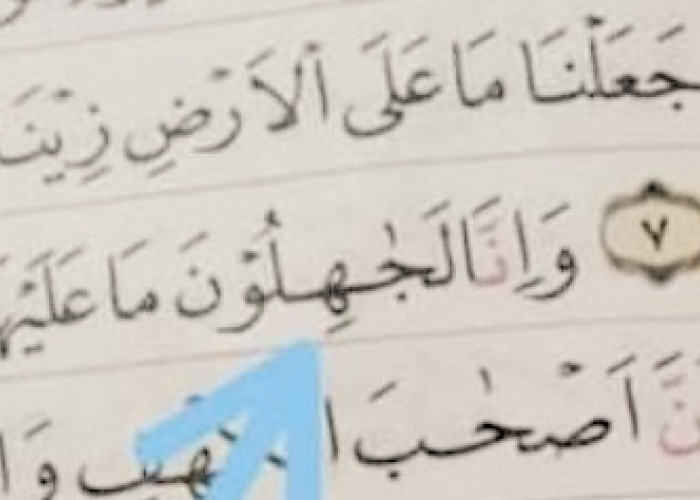 جَعَلْنَا مَا عَلَى الْاَرْضِ زِينَ
٧ وَاِنَّا لَجٰهِلُوْنَ مَا عَلَيْهَ
نَّ اَصْحٰبَ الْ وَا